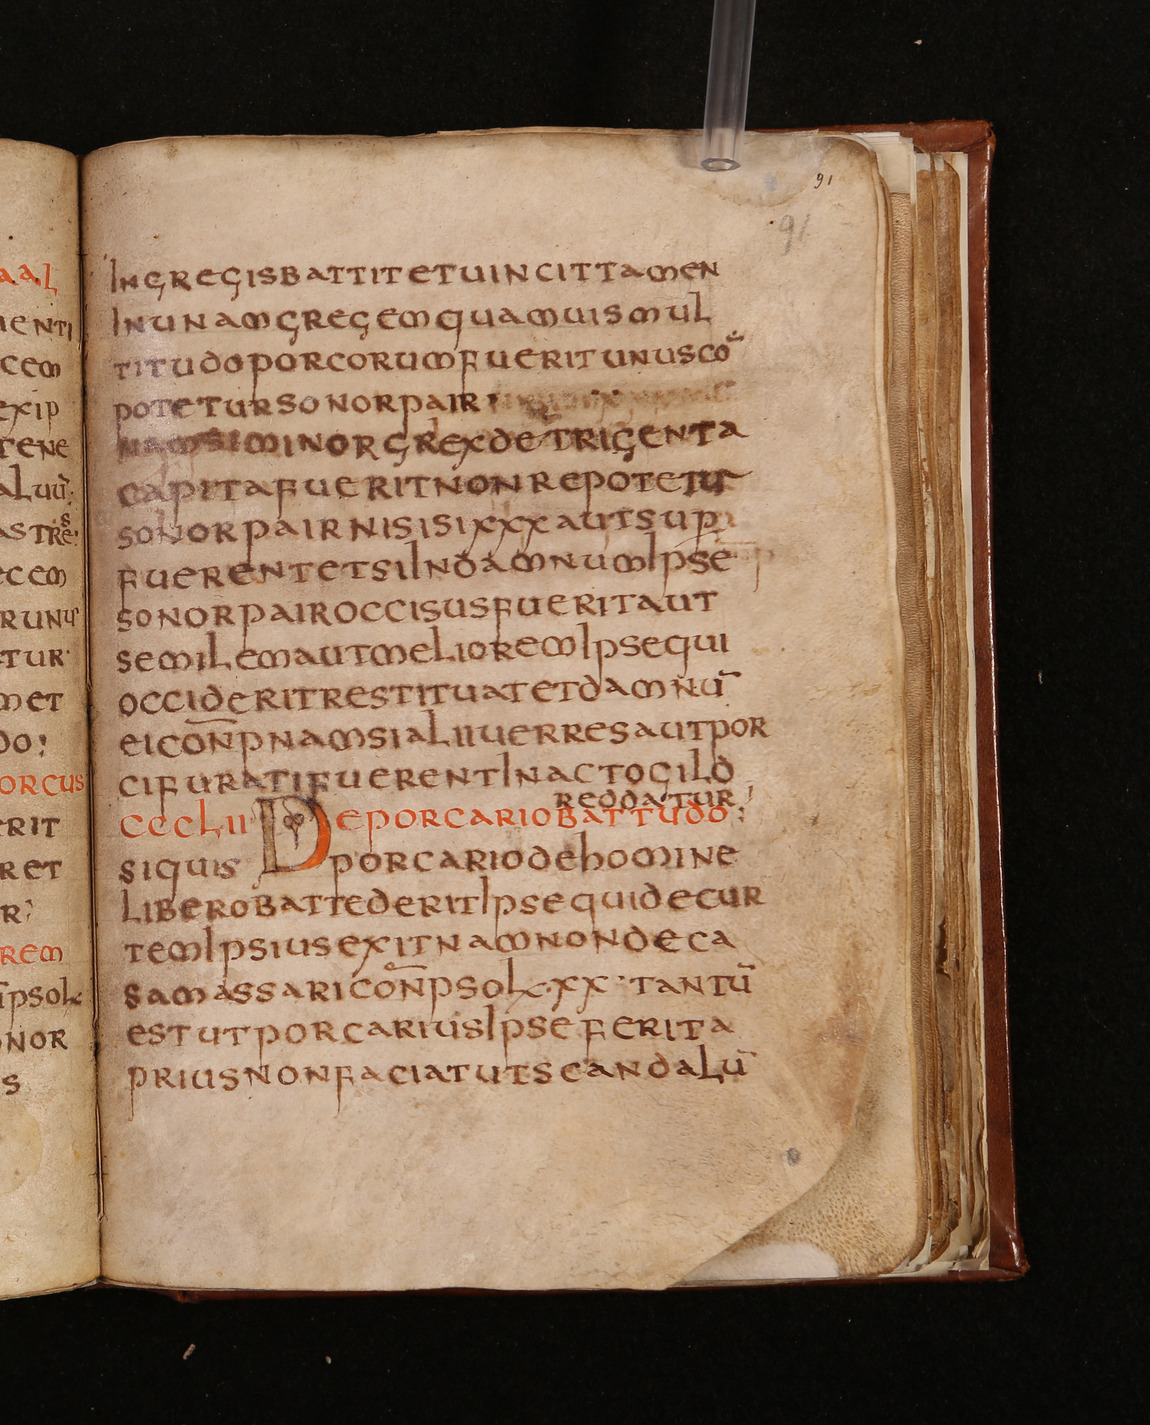 aaL
enti
cem
exip
tene
aluū
astres
ecem
runt
tur
met
do
orcus
erit
ret
r
rem
psol
onor
s
91
91
INGREGISBATTITETUINCITTAMEN
INUNAMGREGEMQUAMUISMUL
TITUDOPORCORUMFUERITUNUSCŌ
POTETURSONORPAIR
NAMSIMINORGREXDETRIGENTA
CAPITAFUERITNONREPOTETUR
SONORPAIRNISISIXXXAUTSUPR
FUERENTETSIINDAMNUMIPSE
SONORPAIROCCISUSFUERITAUT
SEMILEMAUTMELIOREMIPSEQUI
OCCIDERITRESTITUATETDAMNŪ
EICON̄PNAMSIALIIUERRESAUTPOR
CIFURATIFUERENTINACTOGILD
REDDATUR
CCCLII DEPORCARIOBATTUDO
SIQUIS PORCARIODEHOMINE
LIBEROBATTEDERITIPSEQUIDECUR
TEMIPSIUSEXITNAMNONDECA
SAMASSARICON̄PSOL·XX·TANTŪ
ESTUTPORCARIUSIPSEFERITA
PRIUSNONFACIATUTSCANDALŪ